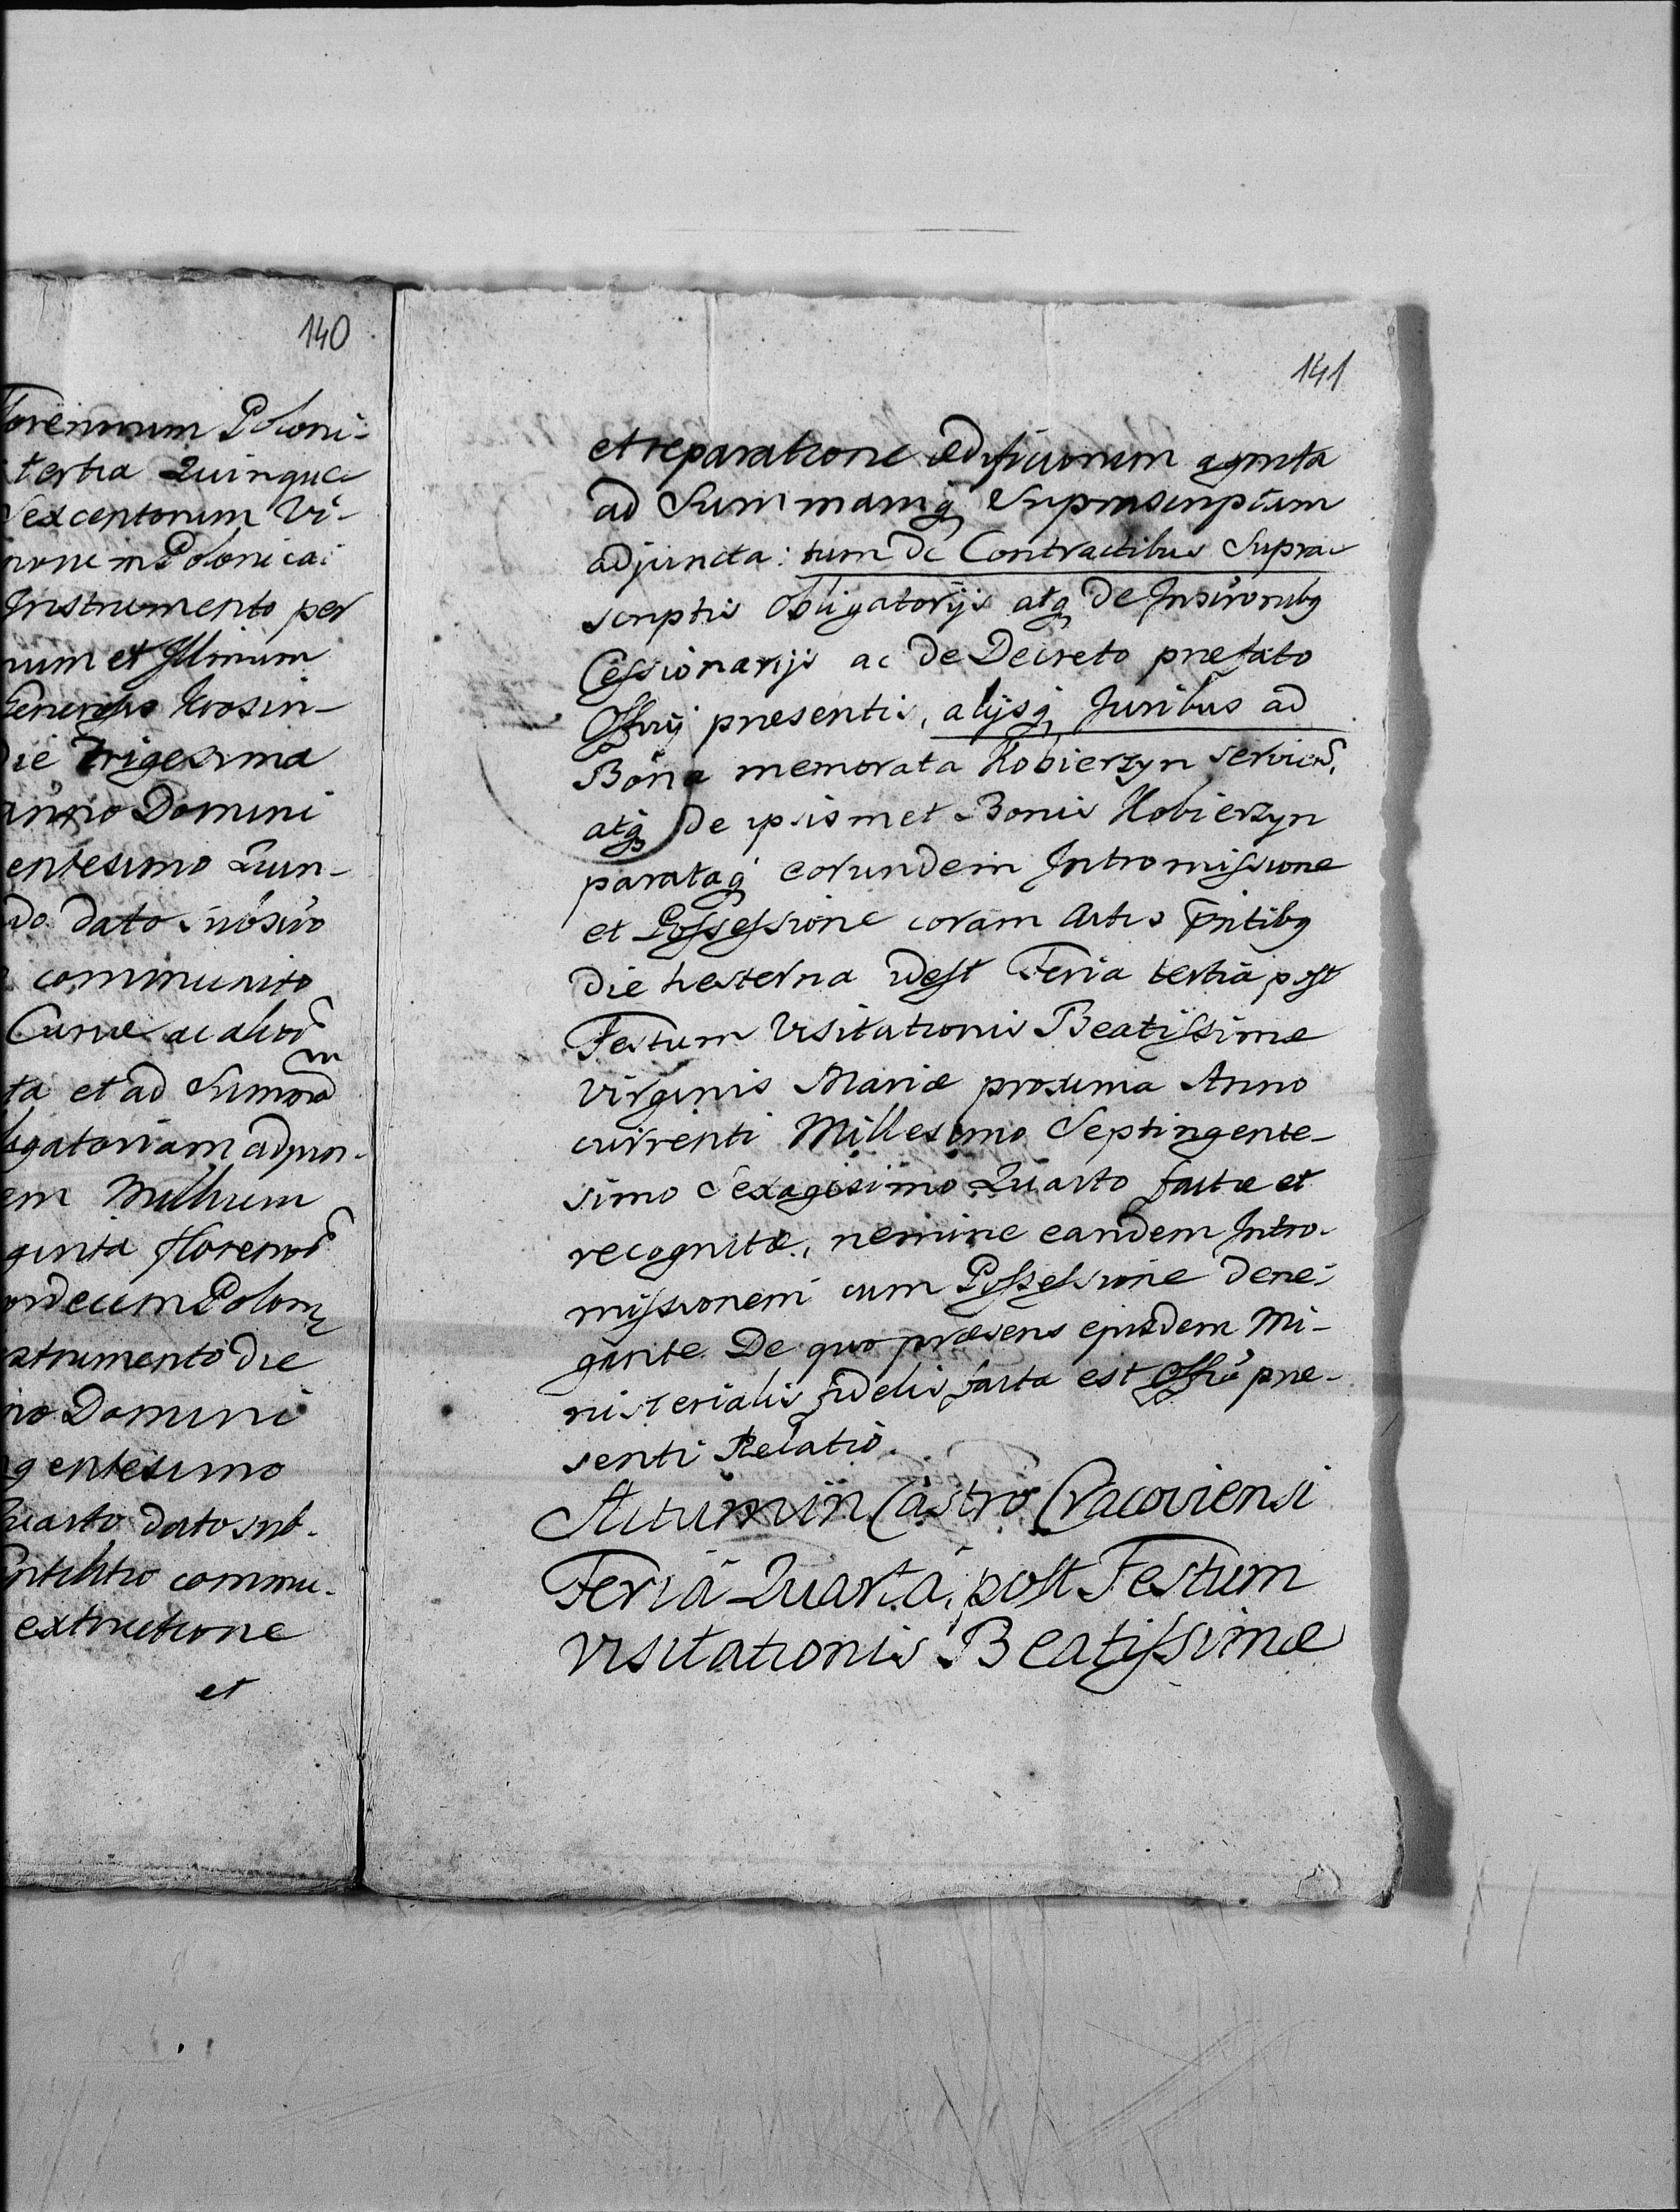 140
Florennum Poloni-
tertia Quinque
Sexcentorum Vi-
none in Polonica:
Instrumento per
num et Illmum
Generosis Krosin-
die Trigesima
anno Domini
entesimo Quin-
do dato subsuo
communito
Curiæ ac alior̃
ta et ad Summam
ligatoriam adjun-
em Millium
ginta florenor̃
ordecim Polon
strumento die
no Domini
gentesimo
Quarto dato sub-
commu-
extructione
et
141
et reparatione ædificiorum agnita
ad Summamq Suprascriptam
adjuncta: tum de Contractibus Supra
scriptis Obligatorijs atq de Inscronibq
Cessionarijs ac de Decreto prefato
Offcij presentis, alijsq Juribus ad
Bona memorata Kobierzyn servien̄.
atq de ipsismet Bonis Kobierzyn
parataq eorundem Intromissione
et Possessione coram Actis Pn̄tibq
die hesterna idest Feria tertia post
Festum Visitationis Beatissimæ
Virginis Mariæ proxima Anno
currenti Millesimo Septingente-
simo Sexagesimo Quarto factæ et
recognitæ, nemine eandem Intro-
missionem cum Possessione dene-
gante. De quo præsens ejusdem Mi-
nisterialis fidelis facta est Offio pre-
senti Relatio.
Actum in Castro Cracoviensi
Feriâ Quartâ, post Festum
Visitationis Beatissimæ